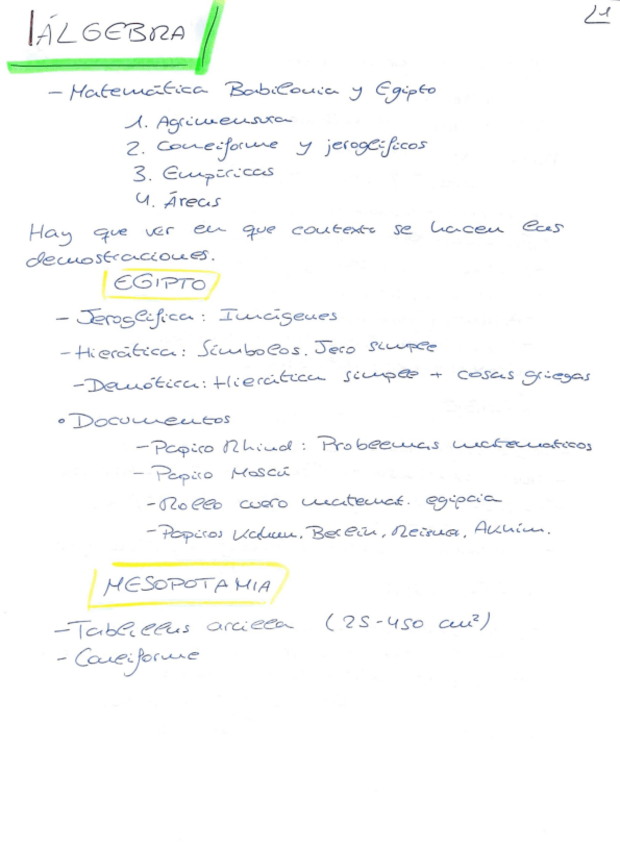 1
ÁLGEBRA
- Matemática Babilonia y Egipto
1. Agrimensura
2. Coneiforme y jeroglíficos
3. Empíricas
4. Áreas
Hay que ver en que contexto se hacen las
demostraciones.
EGIPTO
- Jeroglífica: Imágenes
- Hierática: Símbolos. Jero simple
- Demótica: Hierática simple + cosas griegas
• Documentos
- Papiro Rhind: Problemas matematicos
- Papiro Moscú
- Rollo cuero matemat. egipcia
- Papiros Kahun, Berlín, Reisna, Akhim.
MESOPOTAMIA
- Tablillas arcilla (25-450 cm²)
- Coneiforme